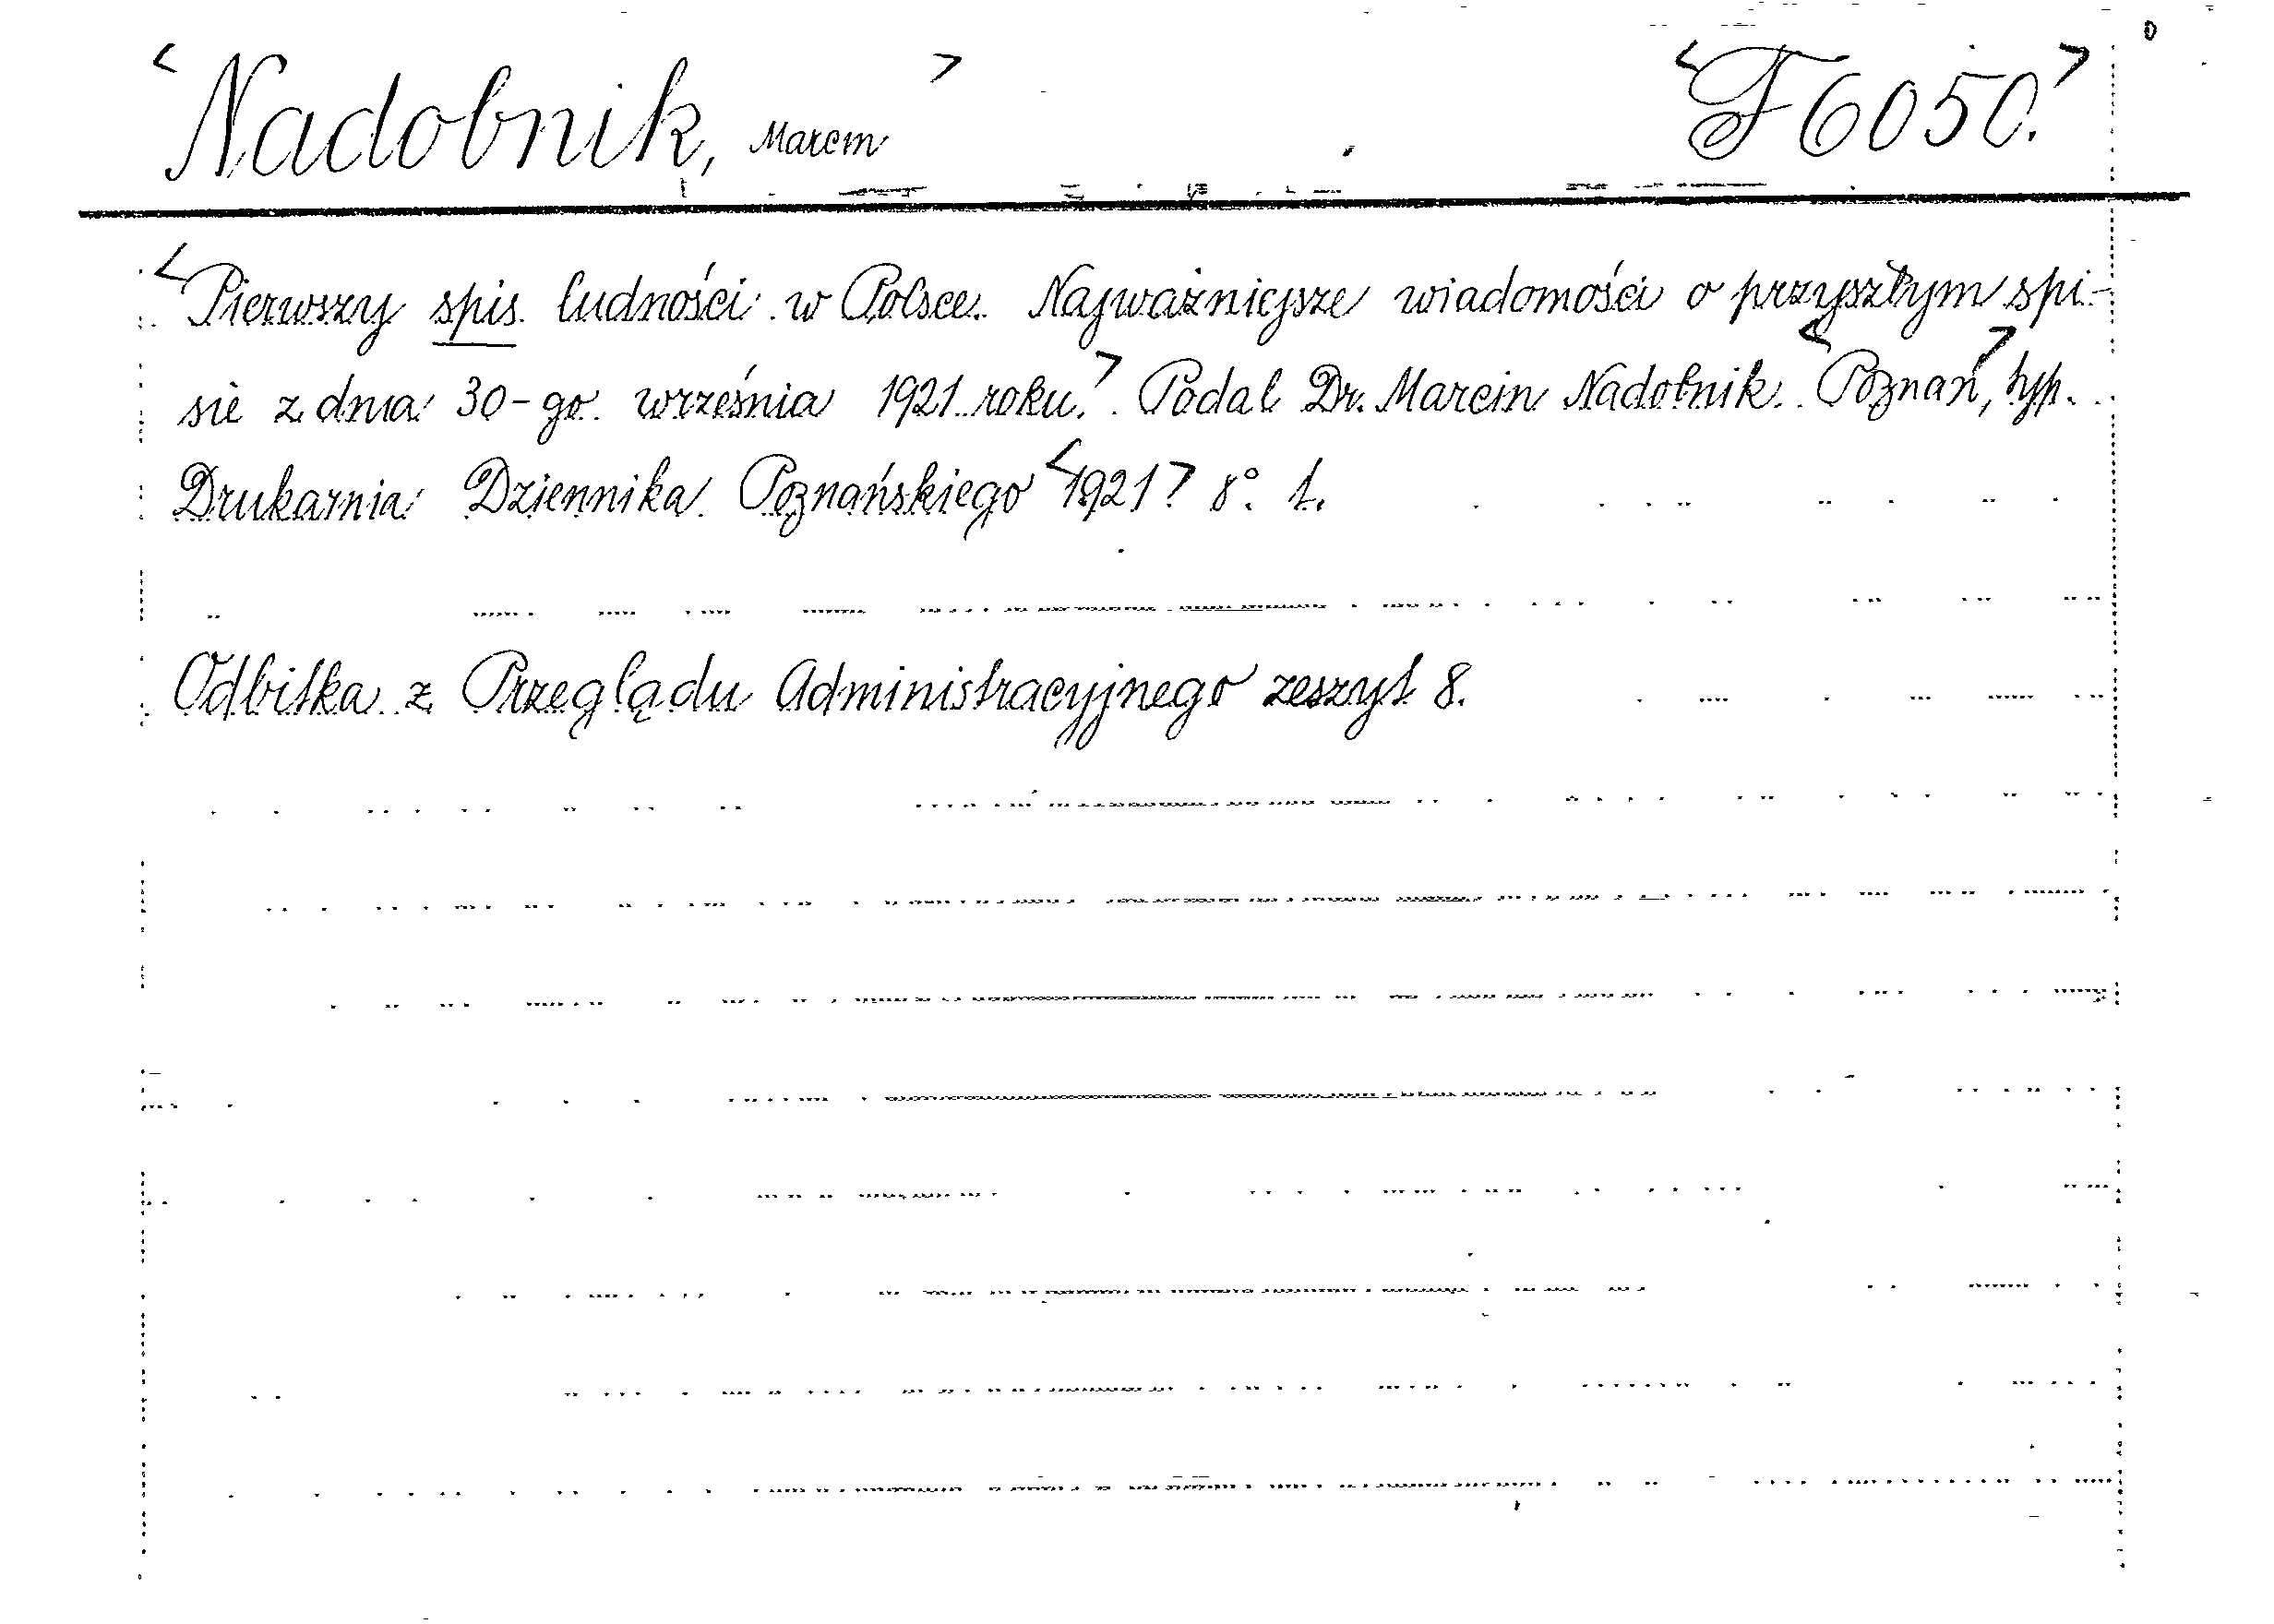 <Nadobnik, Marcin> <F6050.>
<Pierwszy spis ludności w Polsce. Najważniejsze wiadomości o przyszłym spi-
sie z dnia 30-go września 1921 roku.> Podał Dr. Marcin Nadobnik. <Poznań>, typ.
Drukarnia Dziennika Poznańskiego <1921> 8°. 1.
Odbitka z Przeglądu Administracyjnego zeszyt 8.